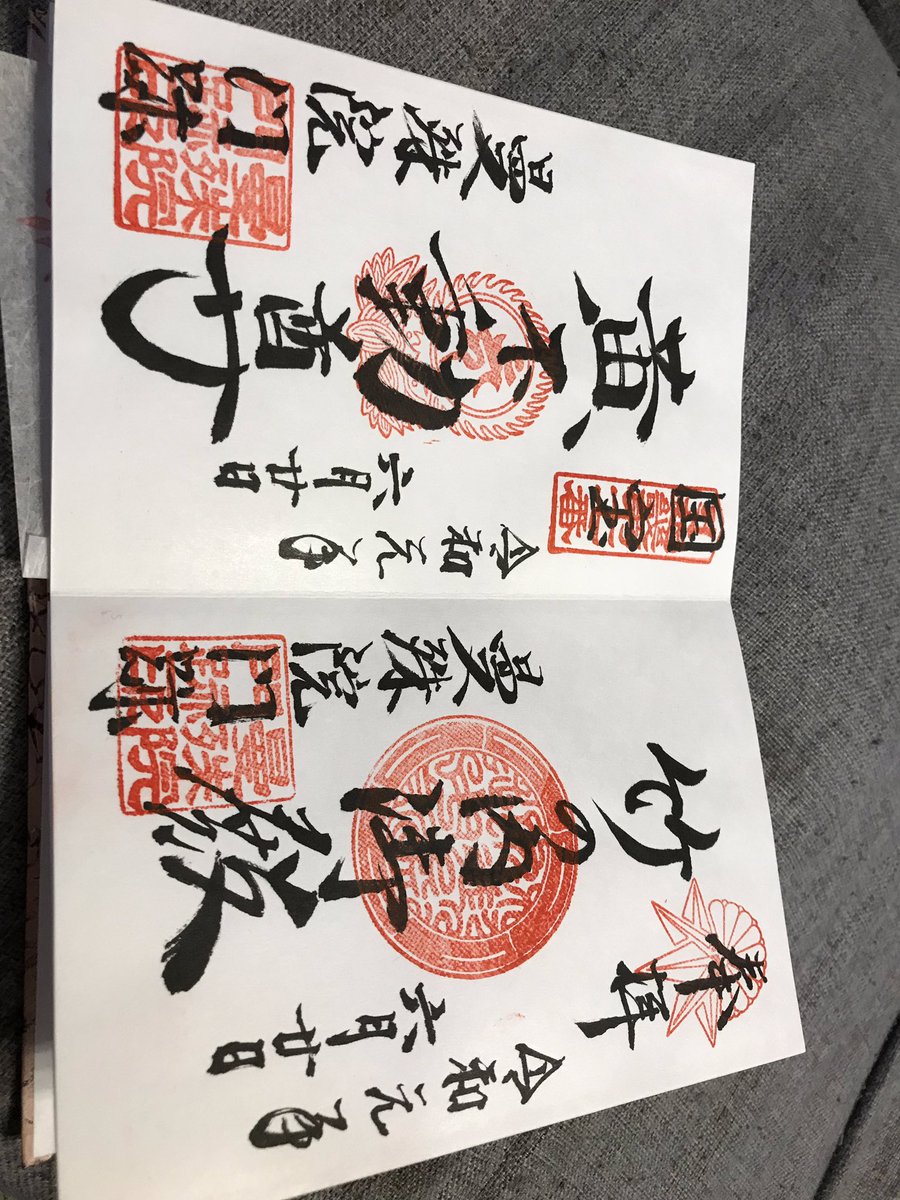 奉拝
令和元年
六月廿日
竹の内御殿
曼殊院
門跡
国宝
令和元年
六月廿日
黄不動尊
曼殊院
門跡